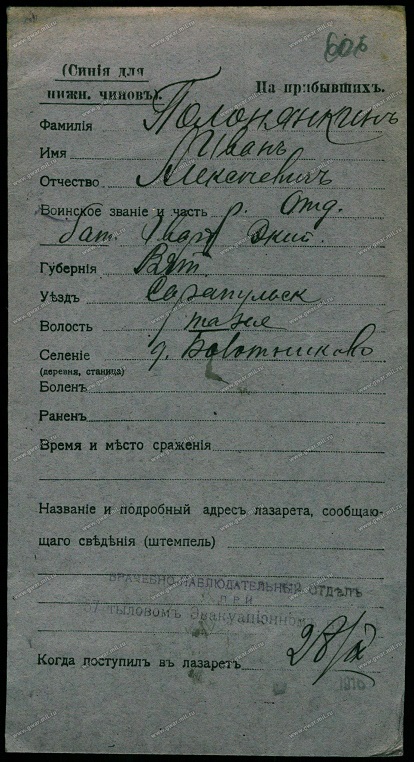 606
(Синія для
нижн. чиновъ).
На прибывшихъ.
Фамилія Полонянкинъ
Имя Иванъ
Отчество Алексѣевичъ
Воинское званіе и часть р. Отд.
бат.
Губернія Вят.
Уѣздъ Сарапульск
Волость
Селеніе д.
(деревня, станица)
Боленъ
Раненъ
Время и мѣсто сраженія
Названіе и подробный адресъ лазарета, сообщаю-
щаго свѣдѣнія (штемпель)
ВРАЧЕБНО-НАБЛЮДАТЕЛЬНЫЙ ОТДѢЛЪ
ПРИ
57 тыловомъ Эвакуаціонномъ
Когда поступилъ въ лазаретъ 28/IX
1916